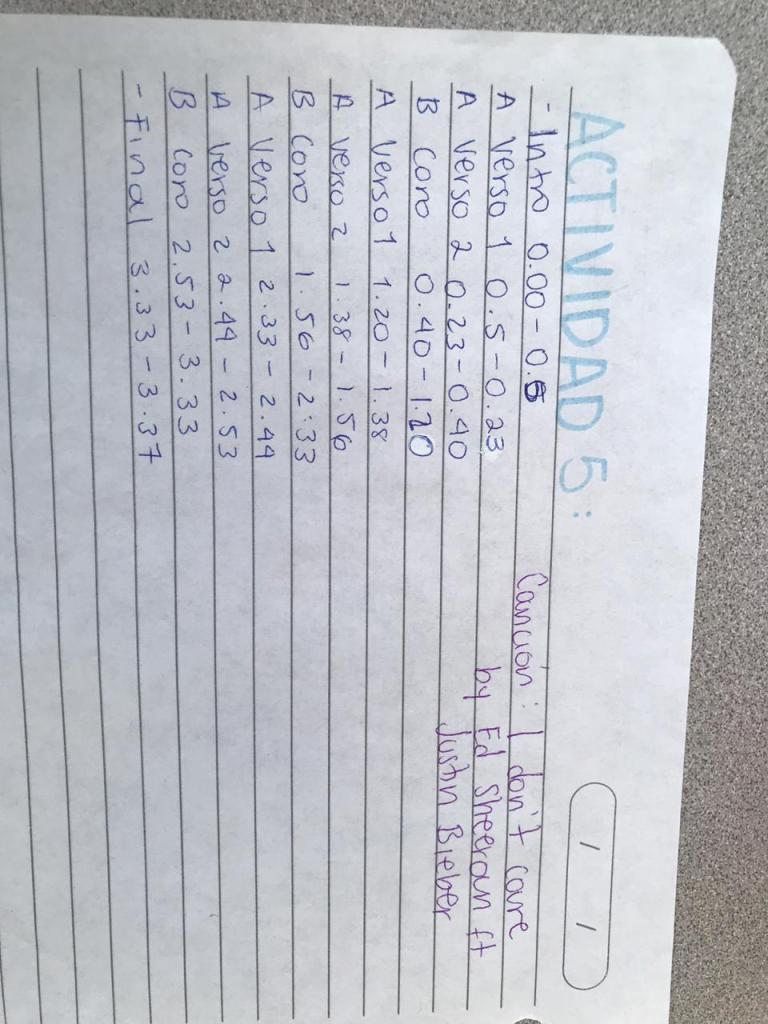 ACTIVIDAD 5:
- Intro 0.00 - 0.5
A Verso 1 0.5 - 0.23
A Verso 2 0.23 - 0.40
B Coro 0.40 - 1.20
A Verso 1 1.20 - 1.38
A verso 2 1.38 - 1.56
B Coro 1.56 - 2:33
A Verso 1 2.33 - 2.44
A Verso 2 2.44 - 2.53
B Coro 2.53 - 3.33
- Final 3.33 - 3.37
Canción: I don't care
by Ed Sheeran ft
Justin Bieber
/ /